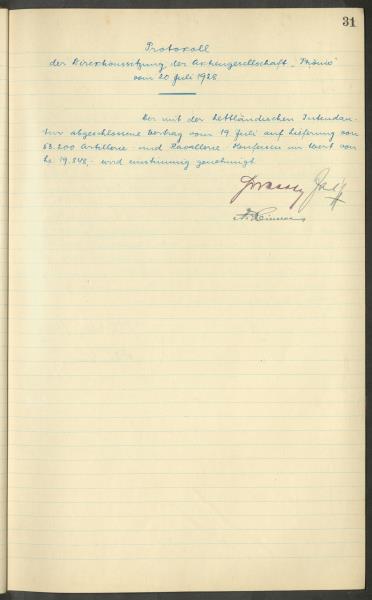 31
Protokoll
der Direktionssitzung der Aktiengesellschaft „Phönix"
vom 20 Juli 1928
Der mit der Lettländischen Intendan-
tur abgeschlossene Vertrag vom 19 Juli auf Lieferung von
53.200 Artillerie- und Kavallerie- Hufeisen im Wert von
Ls. 19,848,- wird einstimmig genehmigt.